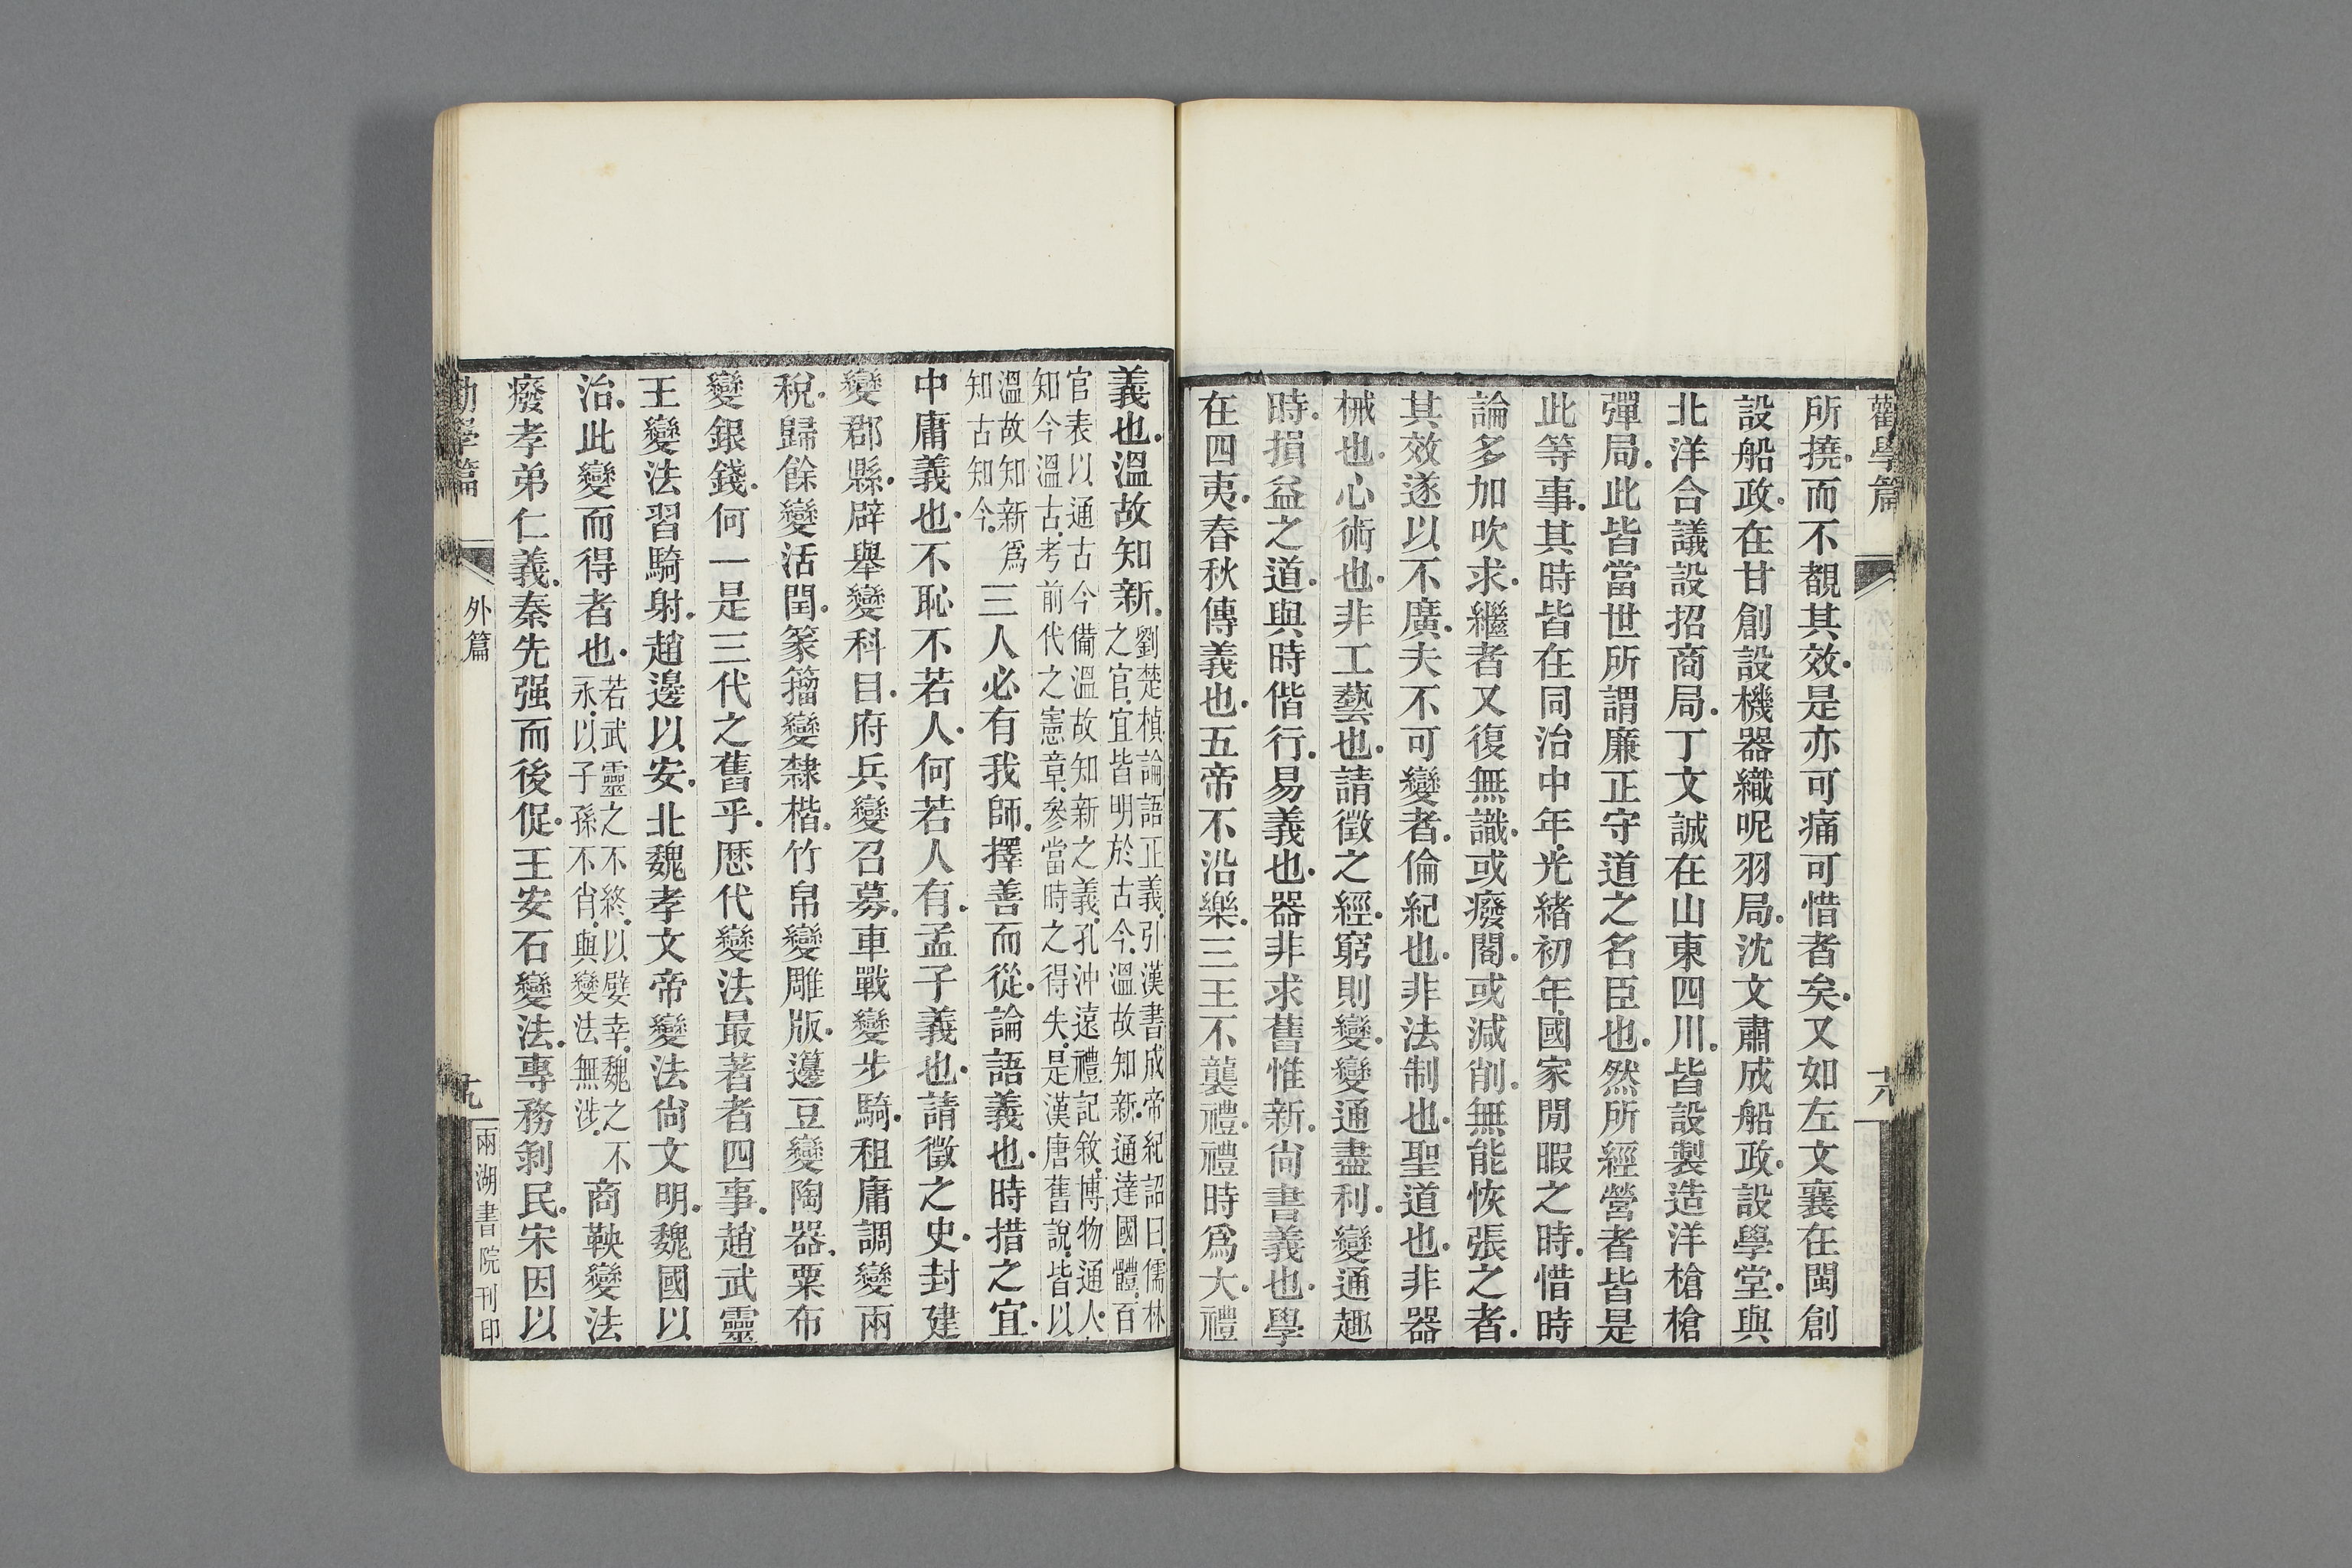 勸學篇
十八
所撓.而不覩其效.是亦可痛可惜者矣.又如左文襄在閩創
設船政.在甘創設機器織呢羽局.沈文肅成船政.設學堂.與
北洋合議設招商局.丁文誠在山東四川.皆設製造洋槍槍
彈局.此皆當世所謂廉正守道之名臣也.然所經營者皆是
此等事.其時皆在同治中年.光緒初年.國家閒暇之時.惜時
論多加吹求.繼者又復無識.或廢閣.或減削.無能恢張之者.
其效遂以不廣.夫不可變者.倫紀也.非法制也.聖道也.非器
械也.心術也.非工藝也.請徵之經.窮則變.變通盡利.變通趣
時.損益之道.與時偕行.易義也.器非求舊惟新.尙書義也.學
在四夷.春秋傳義也.五帝不沿樂.三王不襲禮.禮時爲大.禮
義也.溫故知新.劉楚楨論語正義.引漢書成帝紀詔曰.儒林
之官.宜皆明於古今.溫故知新.通達國體.百
官表以通古今備溫故知新之義.孔沖遠禮記敘.博物通人.
知今溫古.考前代之憲章.參當時之得失.是漢唐舊說.皆以
溫故知新爲
知古知今.
三人必有我師.擇善而從.論語義也.時措之宜.
中庸義也.不恥不若人.何若人有.孟子義也.請徵之史.封建
變郡縣.辟舉變科目.府兵變召募.車戰變步騎.租庸調變兩
稅.歸餘變活閏.篆籀變隸楷.竹帛變雕版.籩豆變陶器.粟布
變銀錢.何一是三代之舊乎.歷代變法最著者四事.趙武靈
王變法習騎射.趙邊以安.北魏孝文帝變法尙文明.魏國以
治.此變而得者也.若武靈之不終.以嬖幸.魏之不
永.以子孫不肖.與變法無涉.
商鞅變法
廢孝弟仁義.秦先强而後促.王安石變法.專務剝民.宋因以
勸學篇
外篇
十九
兩湖書院刊印